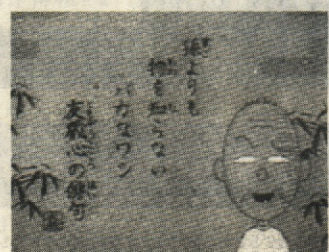 孫よりも
物を知らない
バカなワシ
友蔵心の俳句